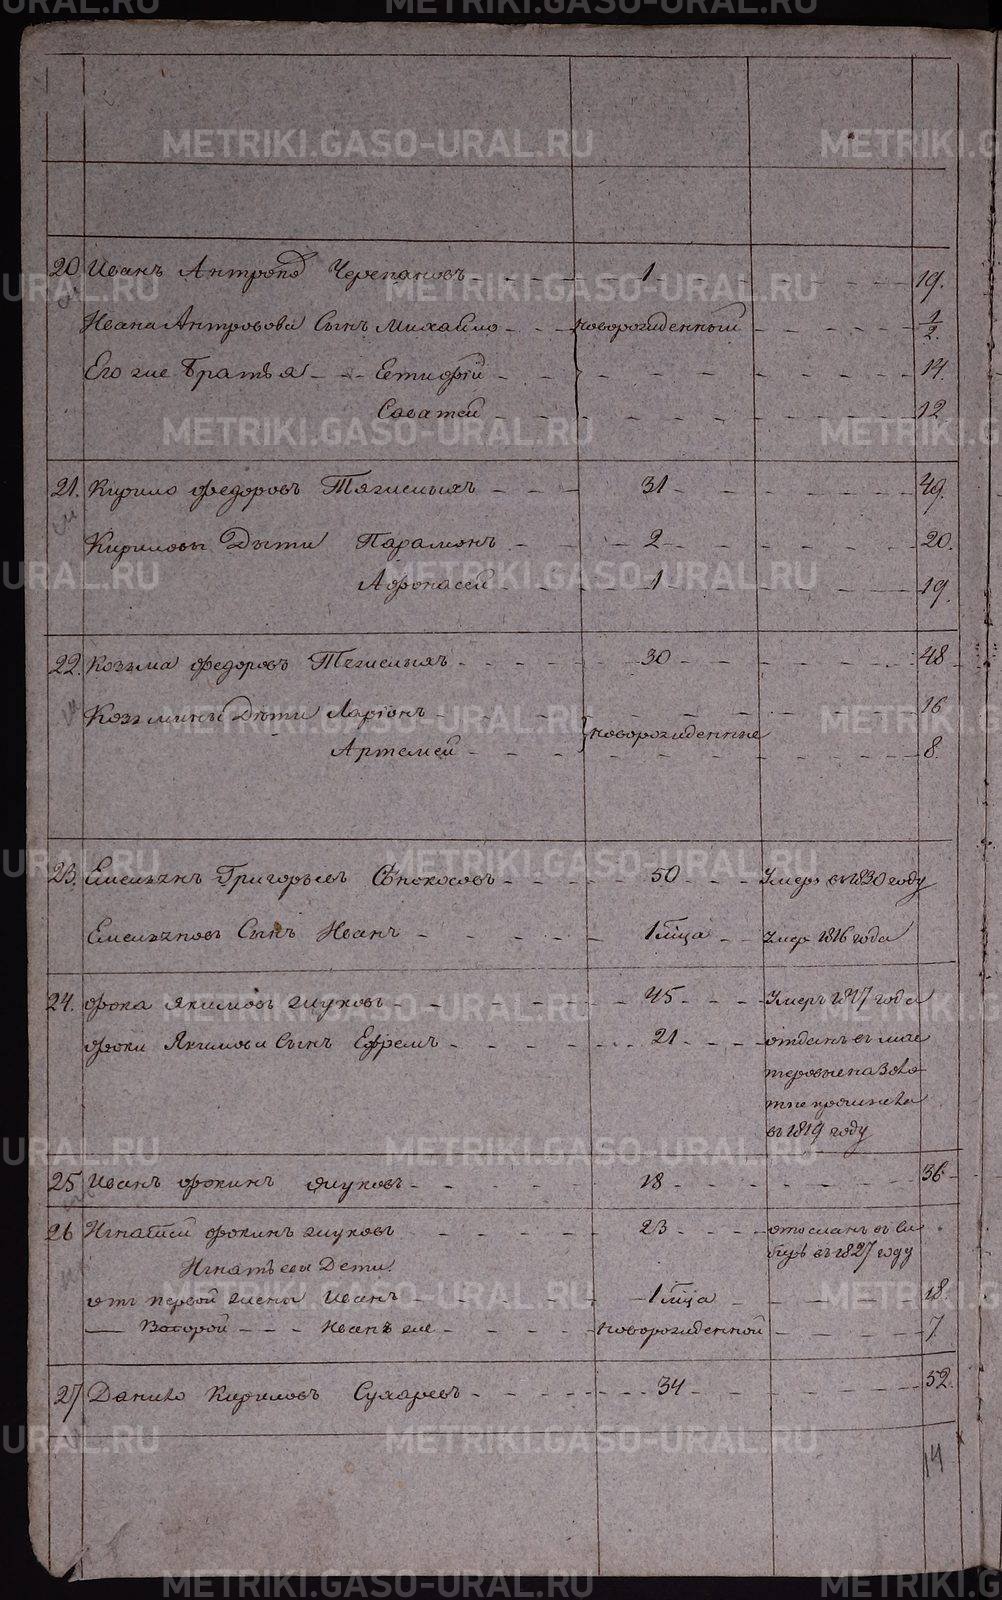 METRIKI.GASO-URAL.RU
20. Иванъ Антропов Черепановъ 1 19.
Ивана Антропова Сынъ Михайло новорожденный 1/2
Его же Братья Етифій 14.
Саватей 12
21. Кирило Федоровъ Тягиевыхъ 31 49.
Кириловы Дѣти Парамонъ 2 20.
Афонасей 1 19.
22. Козьма Федоровъ 30 48
Козьмины Дѣти Ларіонъ 16
новорожденные
Артемей 8.
23. Емельянъ Григорьевъ 50 Умеръ въ 1830 году
Емельяновъ Сынъ Иванъ 1 мца умер 1816 года
24. Фока Якимовъ Жуковъ 45 Умеръ 1817 года
Фоки Якимова Сынъ Ефремъ 21 отданъ въ мас
теровые на Золо
тые промысла
въ 1819 году
25 Иванъ Фокинъ Жуковъ 18 36
26 Игнатей Фокинъ Жуковъ 23 отосланъ въ Си
бирь въ 1827 году
Игнатьевы Дети
отъ первой жены Иванъ 1 мца 18.
Второй Иванъ же новорожденной 7.
27 Данило Кириловъ Сухаревъ 34 52.
14